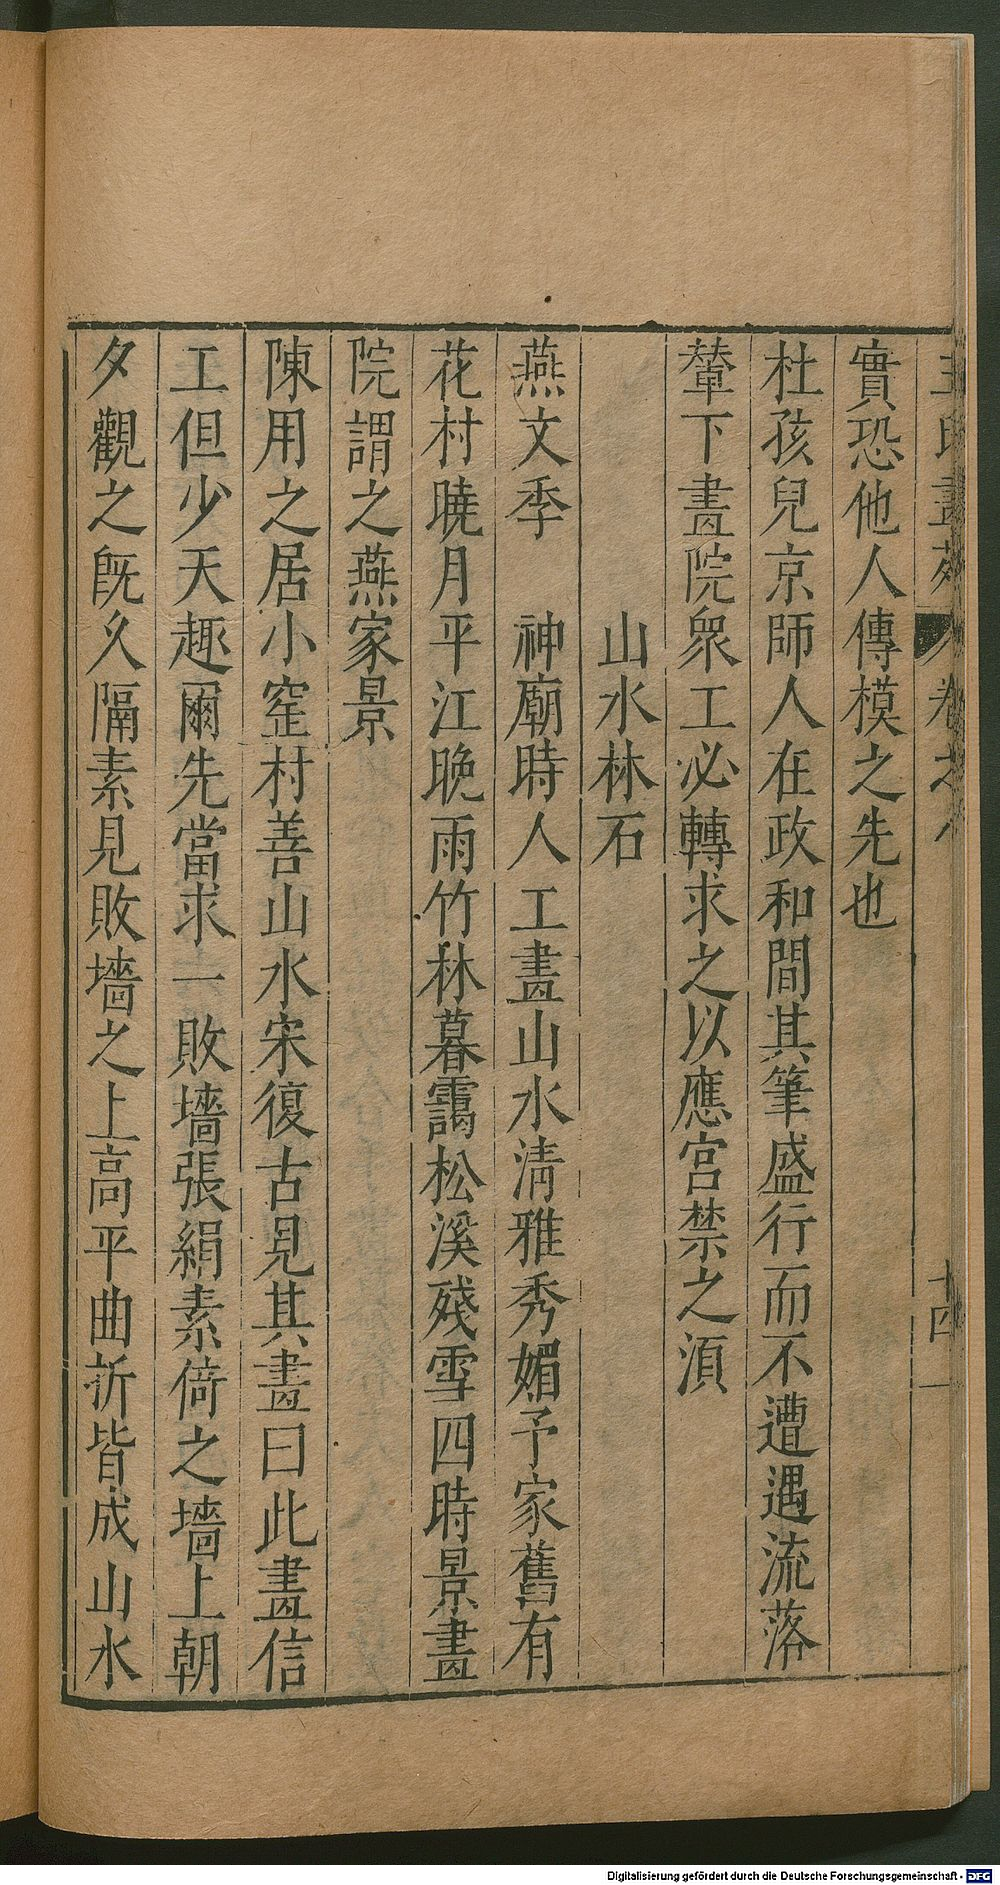 王氏畫苑 卷之八 十四
實恐他人傳模之先也
杜孩兒京師人在政和間其筆盛行而不遭遇流落
輦下畫院衆工必轉求之以應宫禁之湏
山水林石
燕文季 神廟時人工畫山水清雅秀媚予家舊有
花村曉月平江晚雨竹林暮靄松溪殘雪四時景畫
院謂之燕家景
陳用之居小窑村善山水宋復古見其畫曰此畫信
工但少天趣爾先當求一敗墻張絹素倚之墻上朝
夕觀之旣久隔素見敗墻之上高平曲折皆成山水
Digitalisierung gefördert durch die Deutsche Forschungsgemeinschaft - DFG